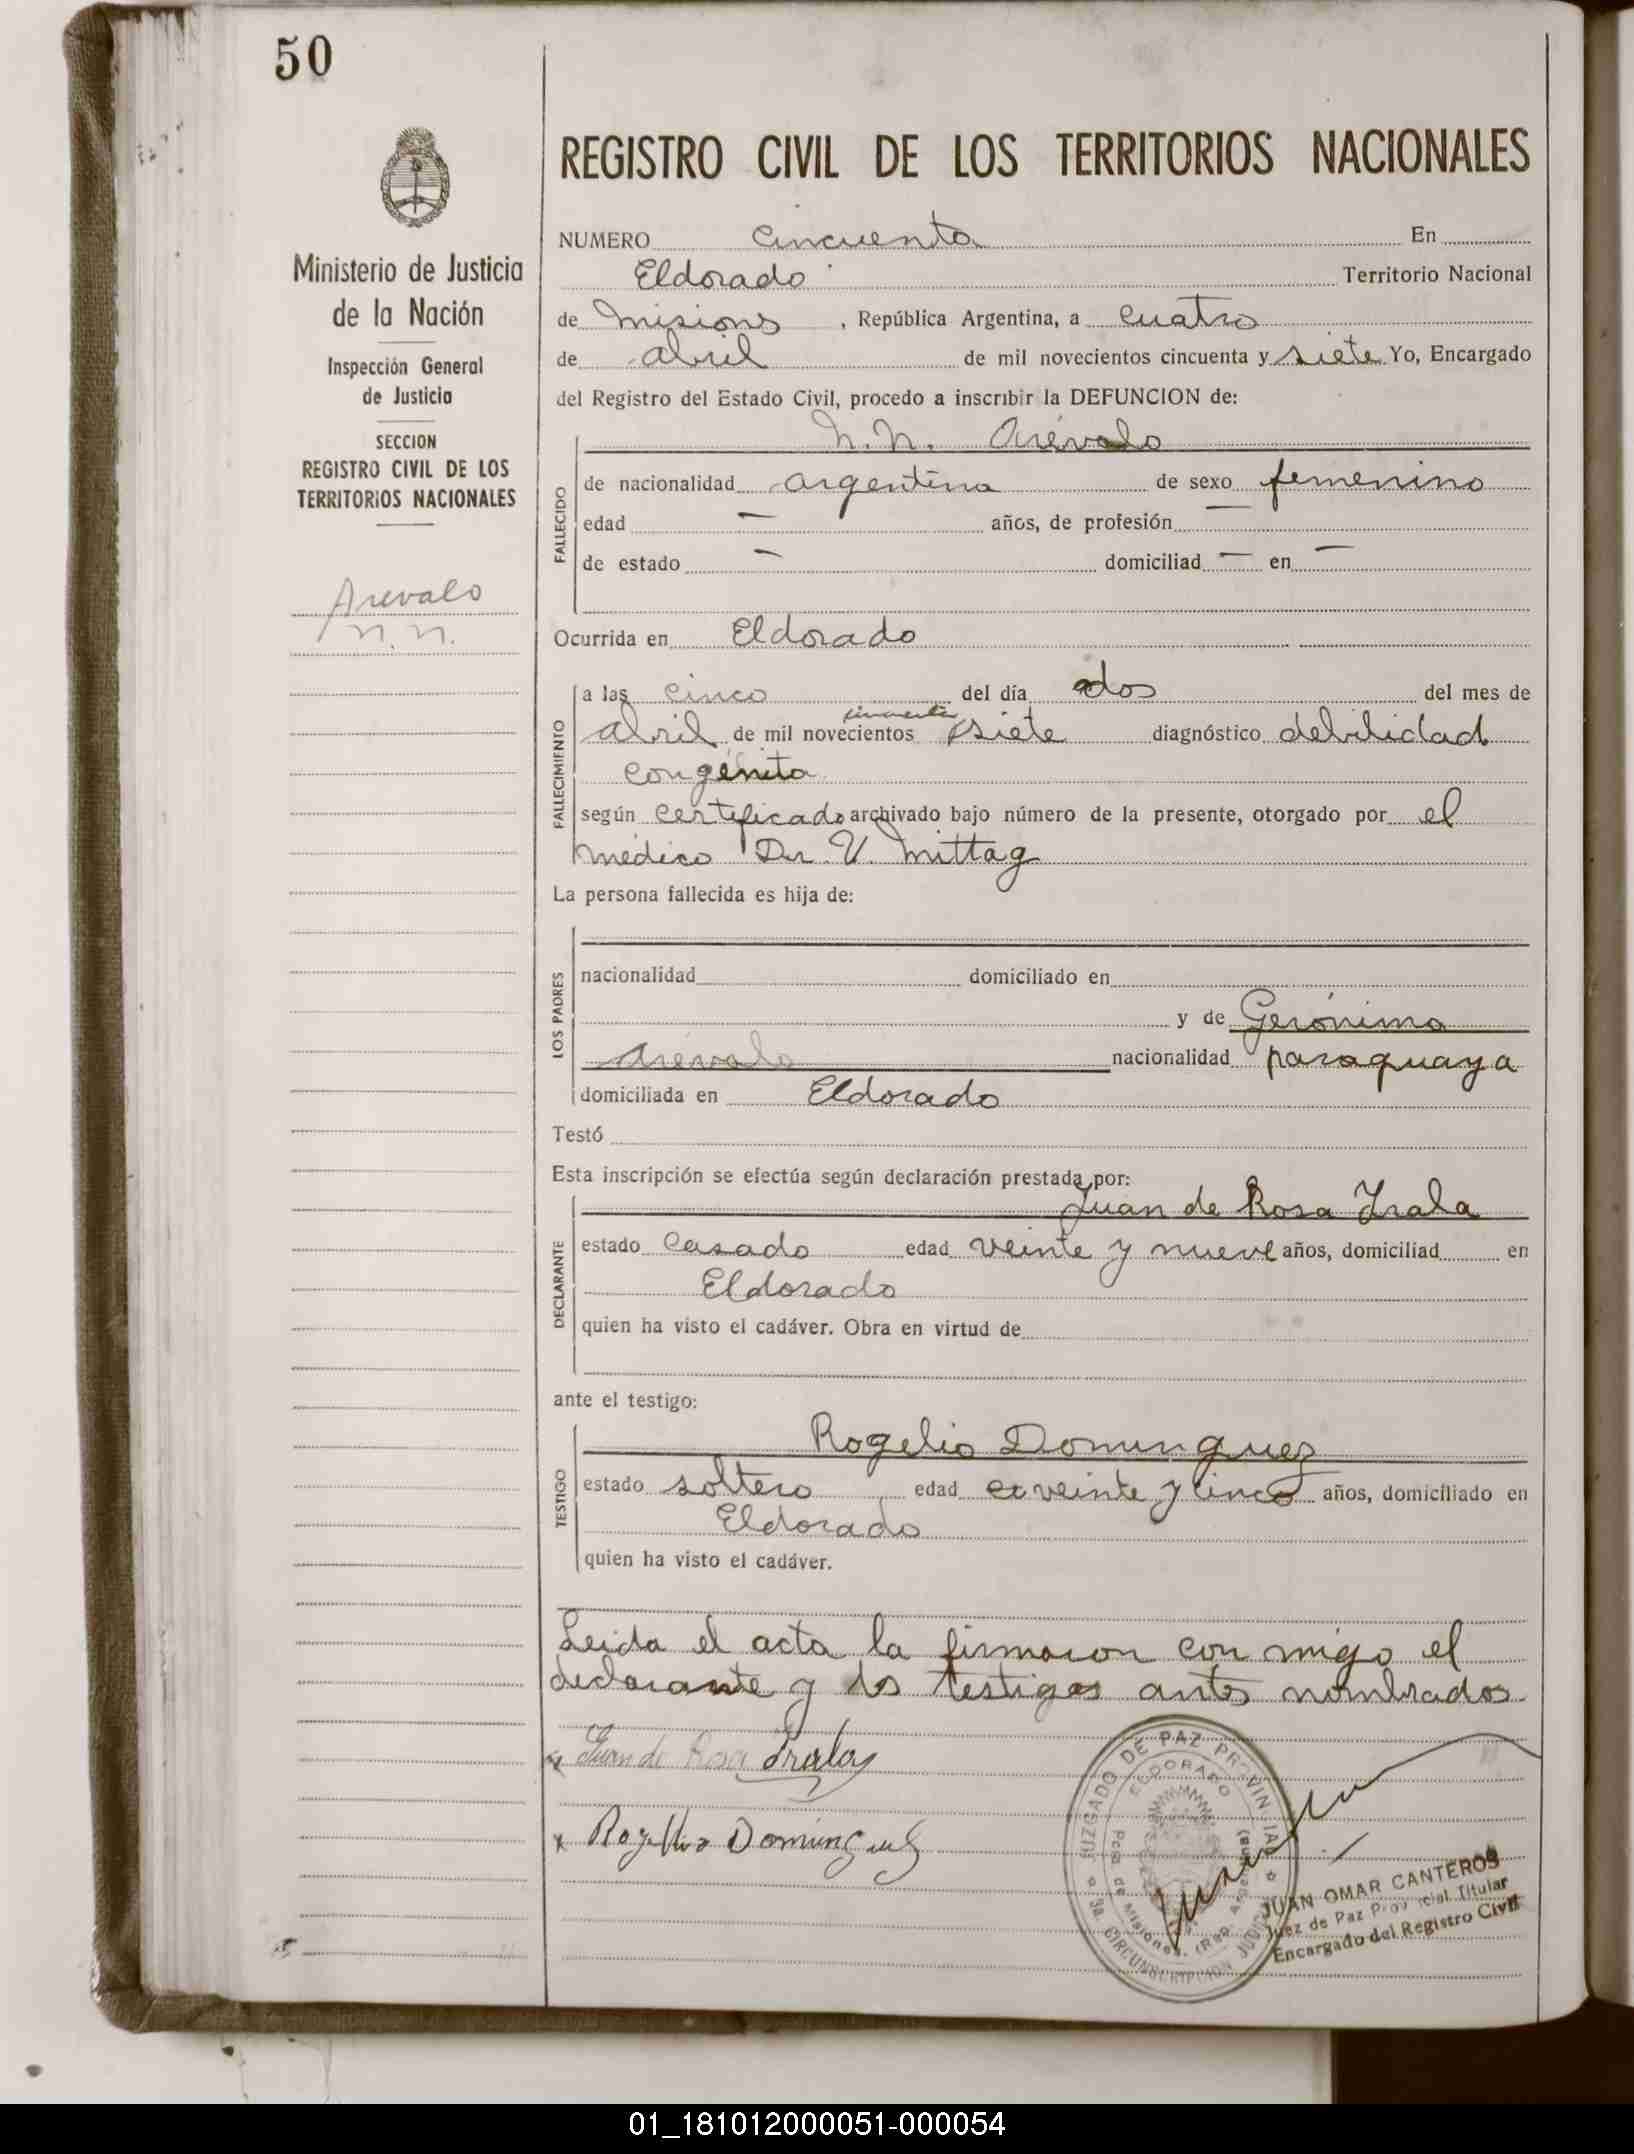 50
Ministerio de Justicia
de la Nación
Inspección General
de Justicia
SECCION
REGISTRO CIVIL DE LOS
TERRITORIOS NACIONALES
Arevalo
n.n.
REGISTRO CIVIL DE LOS TERRITORIOS NACIONALES
NUMERO cincuenta En
Eldorado Territorio Nacional
de Misions, República Argentina, a cuatro
de abril de mil novecientos cincuenta y siete Yo, Encargado
del Registro del Estado Civil, procedo a inscribir la DEFUNCION de:
N.N. Arévalo
FALLECIDO
de nacionalidad argentina de sexo femenino
edad — años, de profesión —
de estado — domiciliad — en —
Ocurrida en Eldorado
FALLECIMIENTO
a las cinco del día dos del mes de
cincuenta
abril de mil novecientos siete diagnóstico debilidad
congénita
según certificado archivado bajo número de la presente, otorgado por el
médico Dr. V. Mittag
La persona fallecida es hija de:
LOS PADRES
nacionalidad domiciliado en
y de Gerónima
Arévalo nacionalidad paraguaya
domiciliada en Eldorado
Testó
Esta inscripción se efectúa según declaración prestada por:
Juan de Rosa Irala
DECLARANTE
estado casado edad veinte y nueve años, domiciliad en
Eldorado
quien ha visto el cadáver. Obra en virtud de
ante el testigo:
Rogelio Dominguez
TESTIGO
estado soltero edad veinte y cinco años, domiciliado en
Eldorado
quien ha visto el cadáver.
Leida el acta la firmaron con migo el
declarante y los testigos antes nombrados
x Juan de Rosa Irala
x Rogelio Dominguez
JUZGADO DE PAZ PROVINCIAL
ELDORADO
Pcia de Misiones. (Rep. Argentina)
3a. CIRCUNSCRIPCION JUDICIAL
JUAN OMAR CANTEROS
Juez de Paz Provincial Titular
Encargado del Registro Civil
01_181012000051-000054